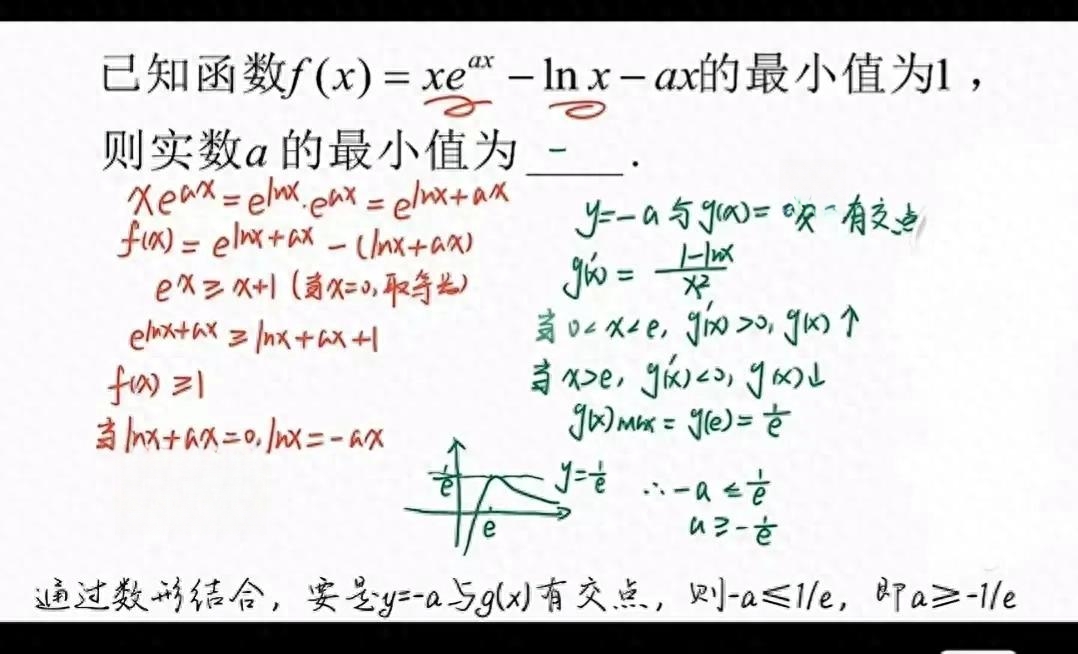 已知函数f(x) = xe^{ax} − ln x − ax的最小值为1，
则实数a 的最小值为 ____ .
xe^{ax} = e^{lnx}·e^{ax} = e^{lnx+ax}
f(x) = e^{lnx+ax} − (lnx+ax)
e^x ≥ x+1 (当x=0,取等号)
e^{lnx+ax} ≥ lnx+ax+1
f(x) ≥ 1
当lnx+ax=0, lnx=−ax
y=−a 与 g(x)= 有交点
g'(x) = \frac{1−lnx}{x²}
当0<x<e, g'(x)>0, g(x)↑
当x>e, g'(x)<0, g(x)↓
g(x)max = g(e) = \frac{1}{e}
\frac{1}{e}
y=\frac{1}{e}
e
∴−a ≤ \frac{1}{e}
a ≥ −\frac{1}{e}
通过数形结合，要是y=-a与g(x)有交点，则-a≤1/e，即a≥-1/e